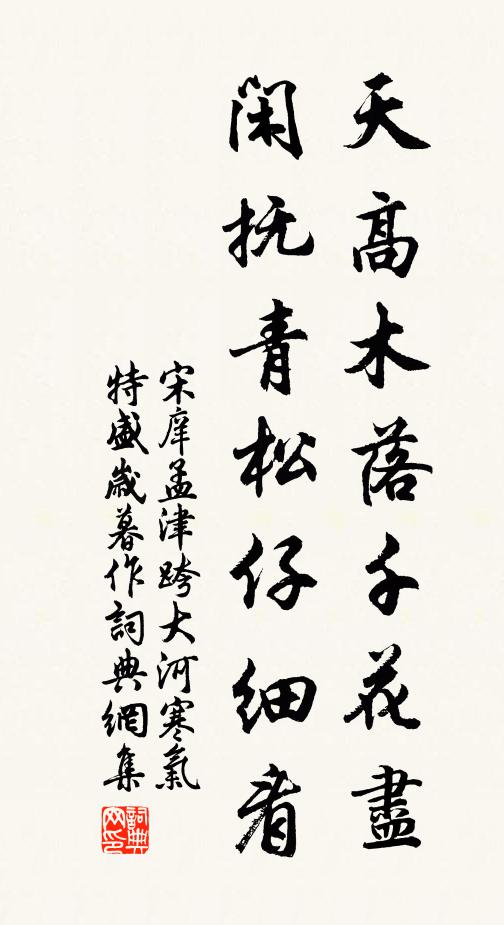 天高木落千花盡
閑抚青松仔細看
宋庠孟津跨大河寒氣
特盛歲暮作詞典網集
詞典
网印